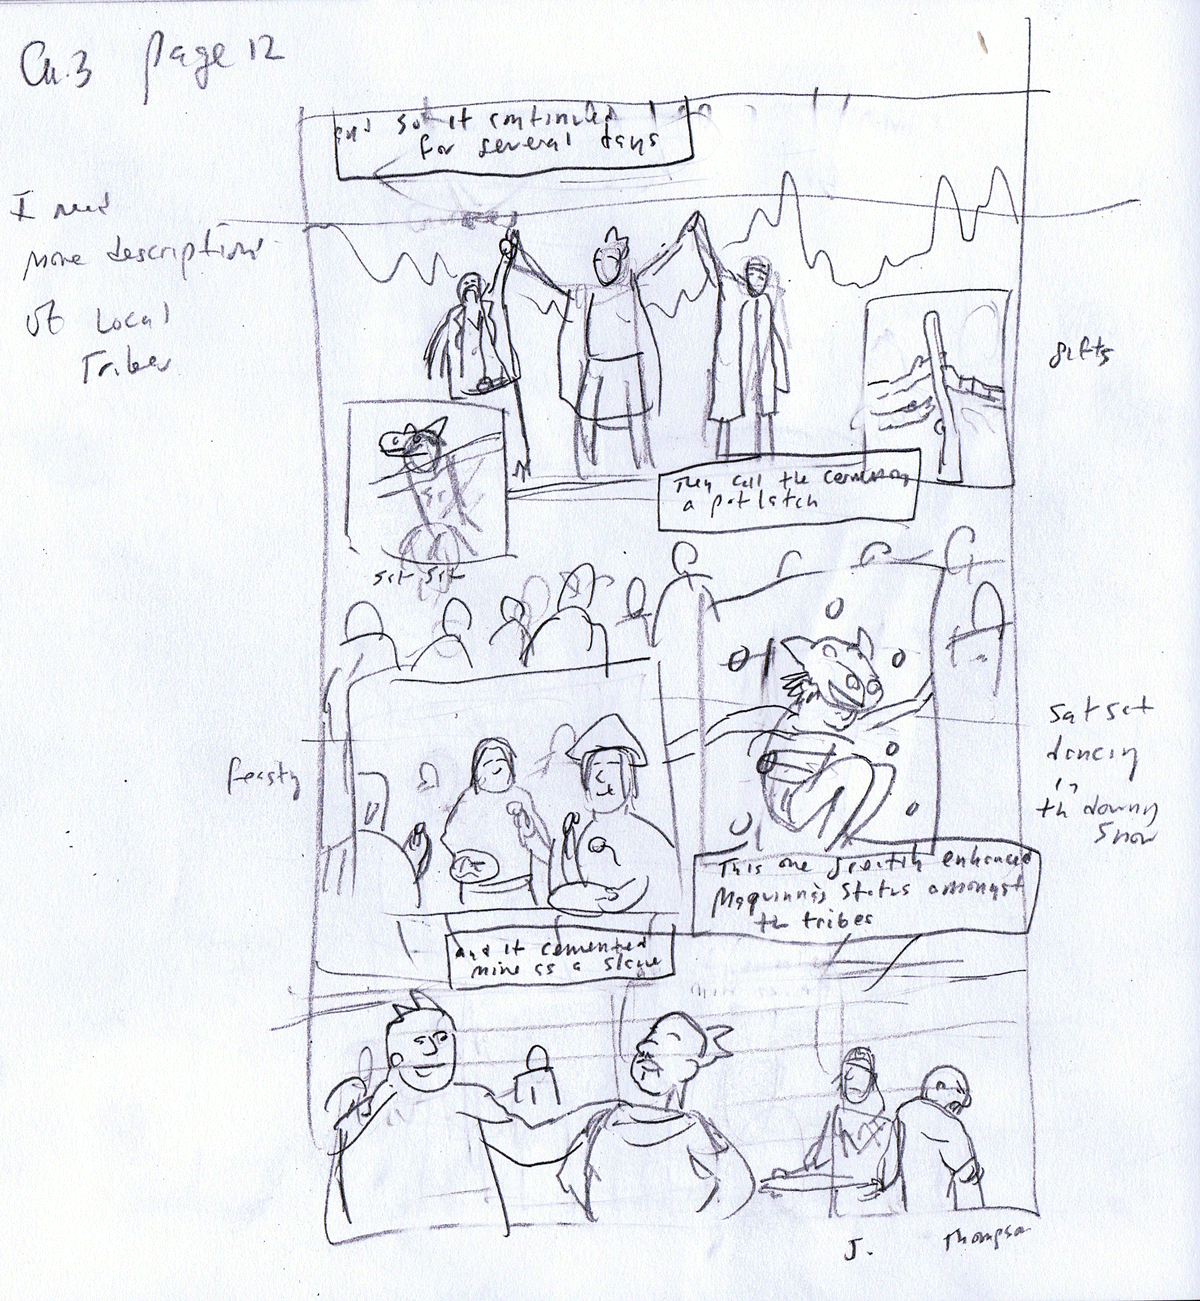 Ch.3 page 12
and so it continued
for several days
I need
more descriptions
of Local
Tribes
gifts
They call the ceremony
a potlatch
sit sit
feasty
Sat sat
dancing
in
th downy
Snow
This one greatly enhanced
Maquinna's status amongst
the tribes
and it cemented
mine as a slave
J.
Thompson